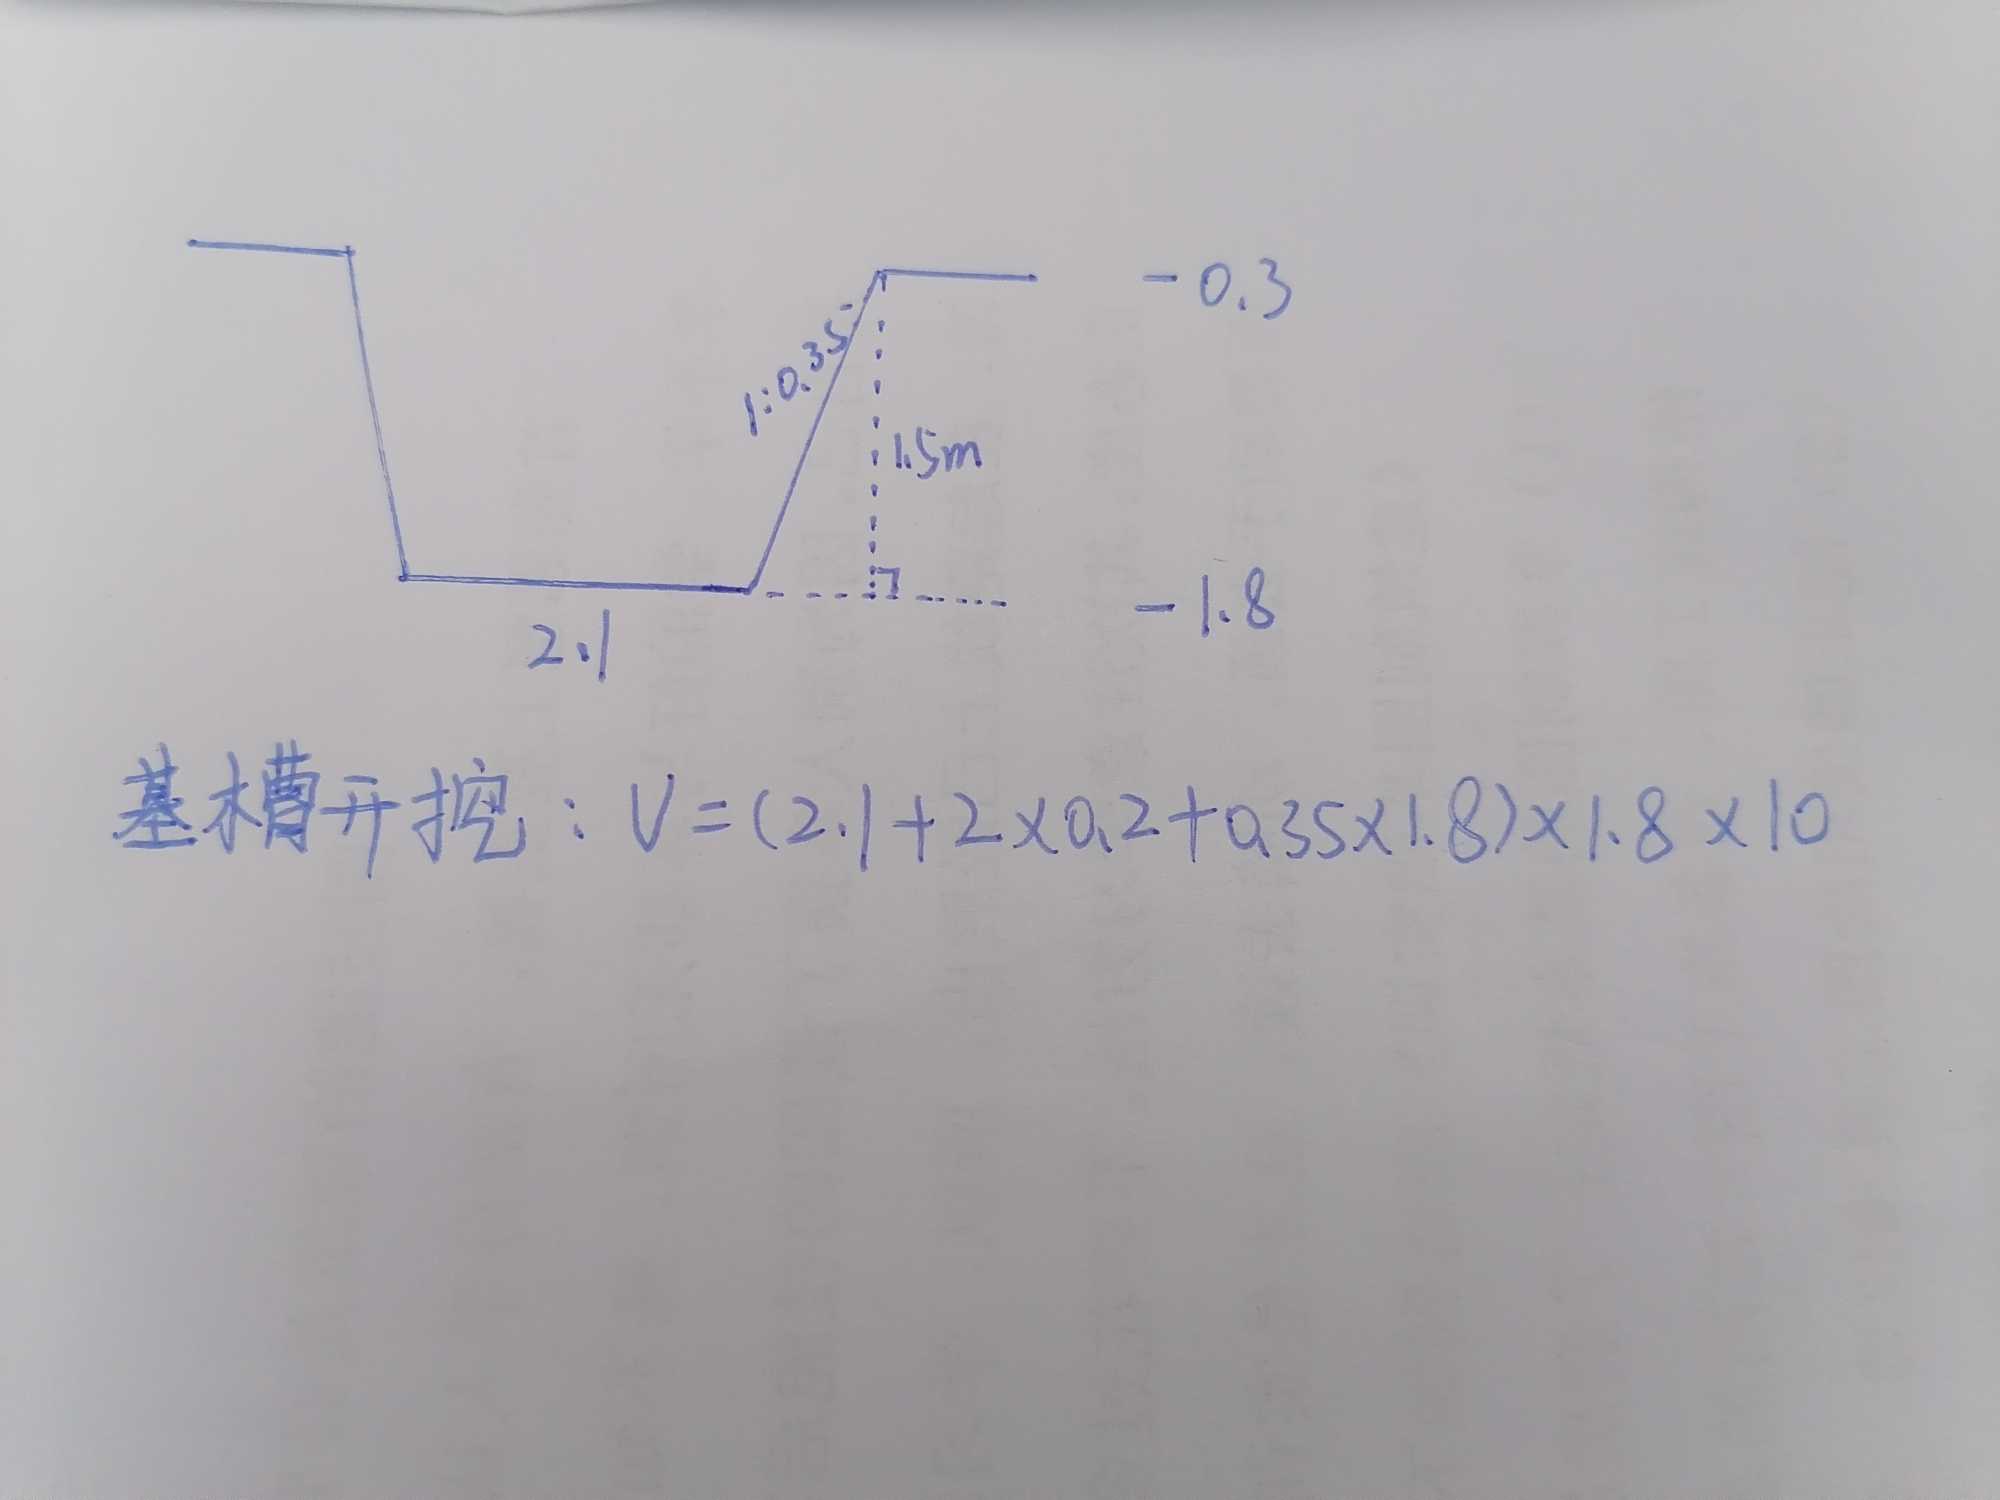 -0.3
1:0.35
1.5m
-1.8
2.1
基槽开挖: V=(2.1+2×0.2+0.35×1.8)×1.8×10